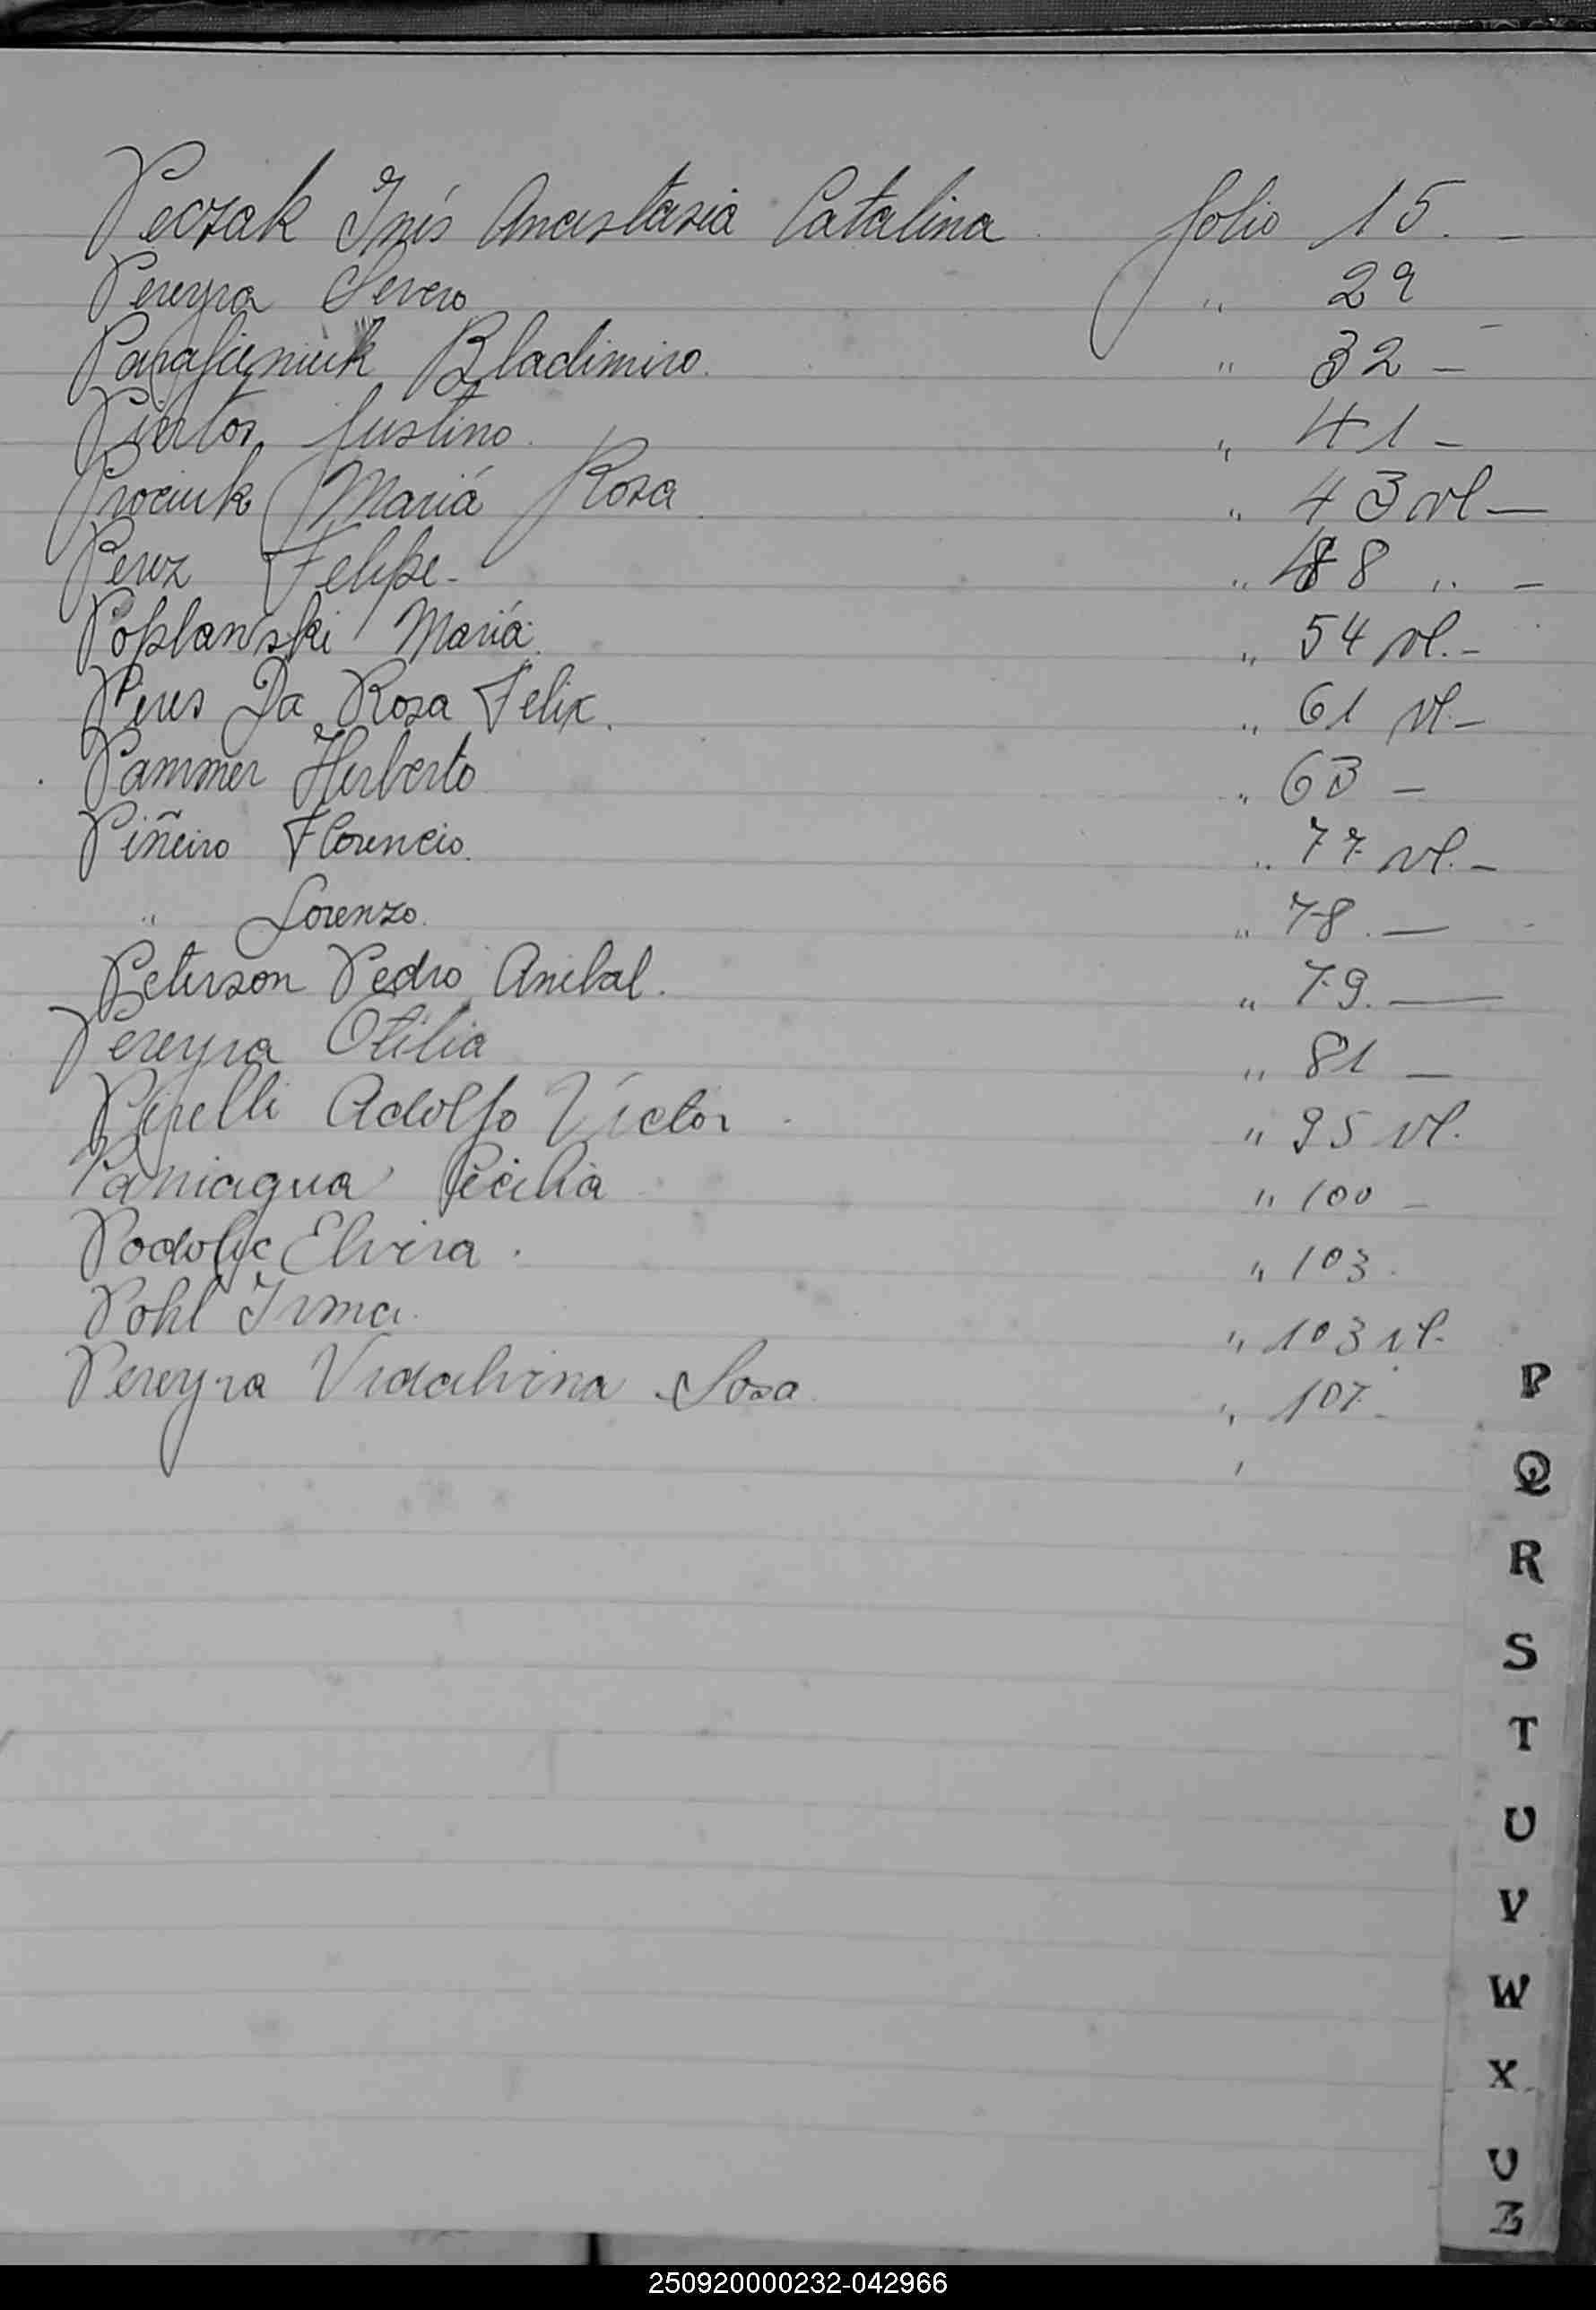 Peczak Inés Anastasia Catalina folio 15. -
Pereyra Severo " 29 -
Parafieniuk Bladimiro. " 32 -
Justino. " 41 -
Prociuk Mariá Rosa. " 43 vl -
Perez Felipe - " 48 " -
Poplanski Mariá. " 54 vl. -
Peres Da Rosa Felix. " 61 vl. -
Pammer Herberto " 63 -
Piñeiro Florencio. " 77 vl. -
" Lorenzo. " 78. -
Peterson Pedro Anibal. " 79. -
Pereyra Otilia " 81 -
Adolfo Víctor " 95 vl.
Paniagua Cecilia " 100 -
Podolyc Elvira. " 103.
Pohl Irma. " 103 vl.
Pereyra Vidalvina Sosa. " 107 -
P
Q
R
S
T
U
V
W
X
U
Z
250920000232-042966